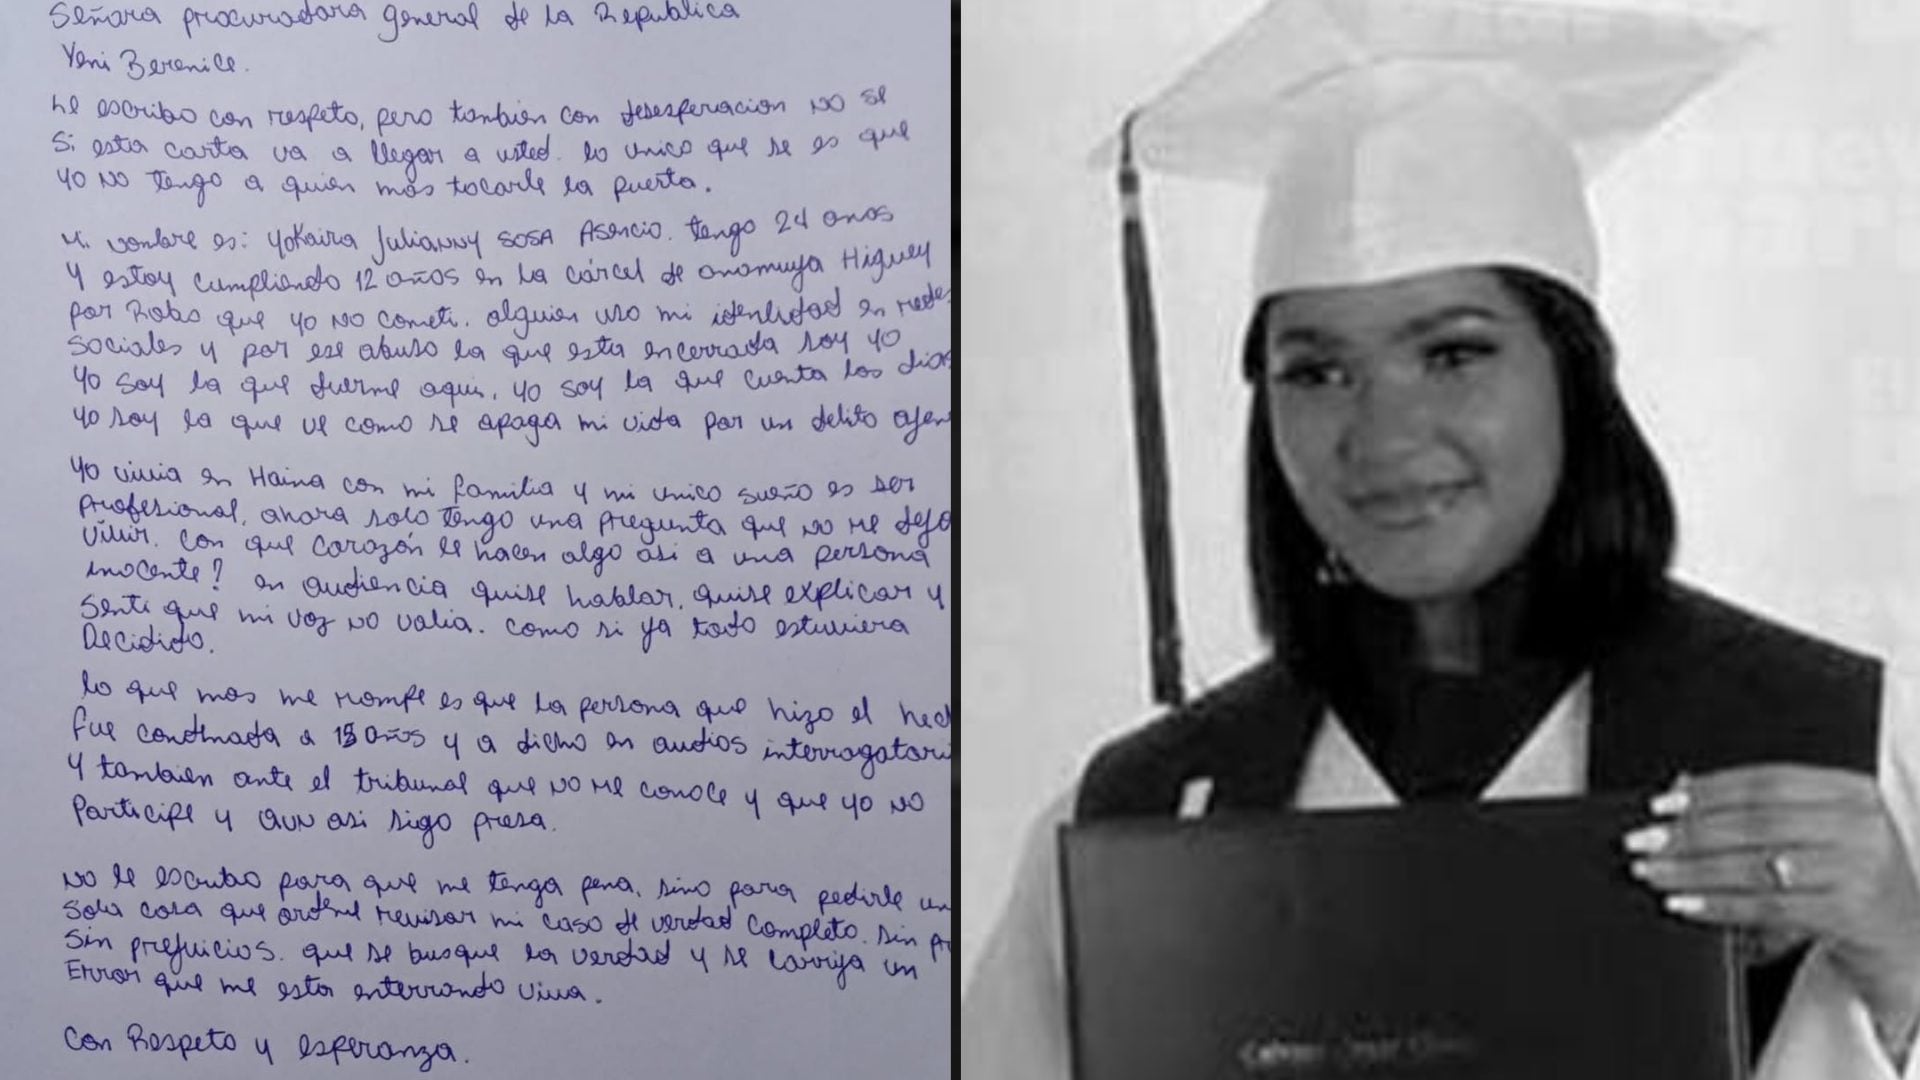 Señora procuradora general de la Republica
Yeni Berenice.
Le escribo con respeto, pero tambien con desesperacion no se
si esta carta va a llegar a usted. lo unico que se es que
yo no tengo a quien mas tocarle la puerta.
Mi nombre es: Yokaira Julianny Sosa Asencio. tengo 24 anos
y estoy cumpliendo 12 años en la cárcel de anamuya Higuey
por Robo que yo no cometi. alguien uso mi identidad en redes
sociales y por ese abuso la que esta encerrada soy yo
yo soy la que duerme aqui, yo soy la que cuenta los dias
yo soy la que ve como se apaga mi vida por un delito ajen
yo vivia en Haina con mi familia y mi unico sueño es ser
profesional, ahora solo tengo una pregunta que no me deja
vivir. con que corazón le hacen algo asi a una persona
inocente? en audiencia quise hablar, quise explicar y
senti que mi voz no valia. como si ya todo estuviera
Decidido.
lo que mas me rompe es que la persona que hizo el hech
fue condenada a 15 años y a dicho en audios interrogatori
y tambien ante el tribunal que no me conoce y que yo no
Participe y aun asi sigo presa.
No le escribo para que me tenga pena, sino para pedirle un
sola cosa que ordene revisar mi caso de verdad completo. sin pr
sin prejuicios. que se busque la verdad y se corrija un
Error que me esta enterrando viva.
Con Respeto y esperanza.